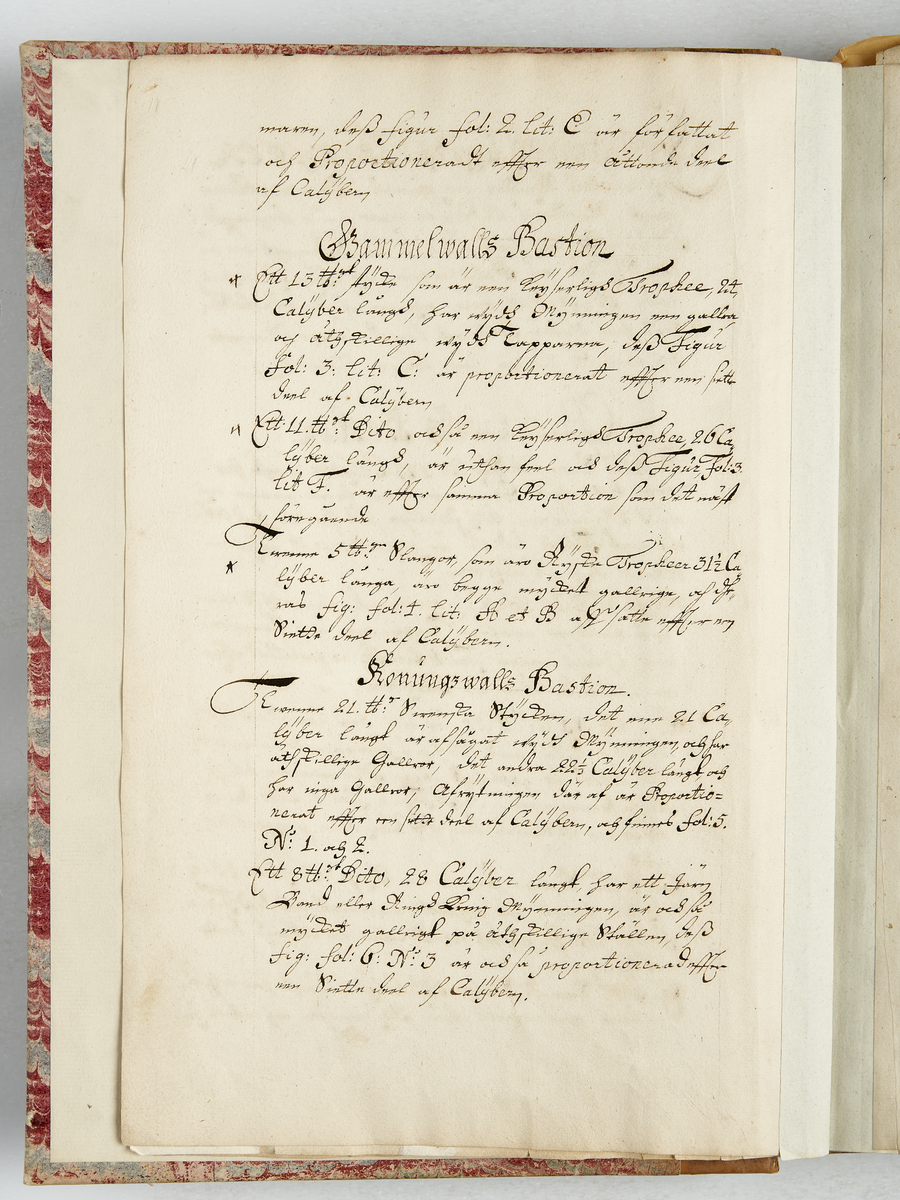 maren, deß figur fol: 2. lit: C är författat
och Proportioneradt effter een Åttonde deel
af Calÿbern
Gammelwalls Bastion
Ett 13 ℔:igt stÿcke som är een Keÿserligh Trophee, 24
Calÿber långh, har widh Mÿnningen een gallra
och åthskillige widh Tapparna, deß Figur
Fol: 3: lit: C: är proportionerat effter een siette
deel af Calÿbern
Ett 11 ℔:igt Dito också een Keÿserligh Trophee, 26 Ca,
lÿber långh, är uthan feel och deß Figur Fol: 3
lit F. är effter samma Proportion som dett näst
föregående
Twenne 5 ℔:ige Slangor, som äro Rÿske Tropheer 31½ Ca
lÿber långa, äro begge mÿcket gallrige, och de,
ras fig: fol: 4. lit: A et B affsatte effter en
Siette deel af Calÿbern.
Konungzwalls Bastion.
Twenne 21. ℔:r Swenska Stÿcken, det ene 21 Ca,
lÿber långt är afsågat widh Mÿnningen, och har
åthskillige Gallror, det andra 22½ Calÿber långt och
har inga Gallror, Afrÿtningen där af är Proportio=
nerat effter een siette deel af Calÿbern, och finnes fol: 5.
N:o 1. och 2.
Ett 8 ℔:igt Dito, 28 Calÿber långt, har ett Järn
Band eller Ringh kring Mÿnningen, är också
mÿcket gallrigt på åthskillige Ställen, deß
fig: fol: 6: N:o 3 är också proportionerad effter
een Siette deel af Calÿbern.